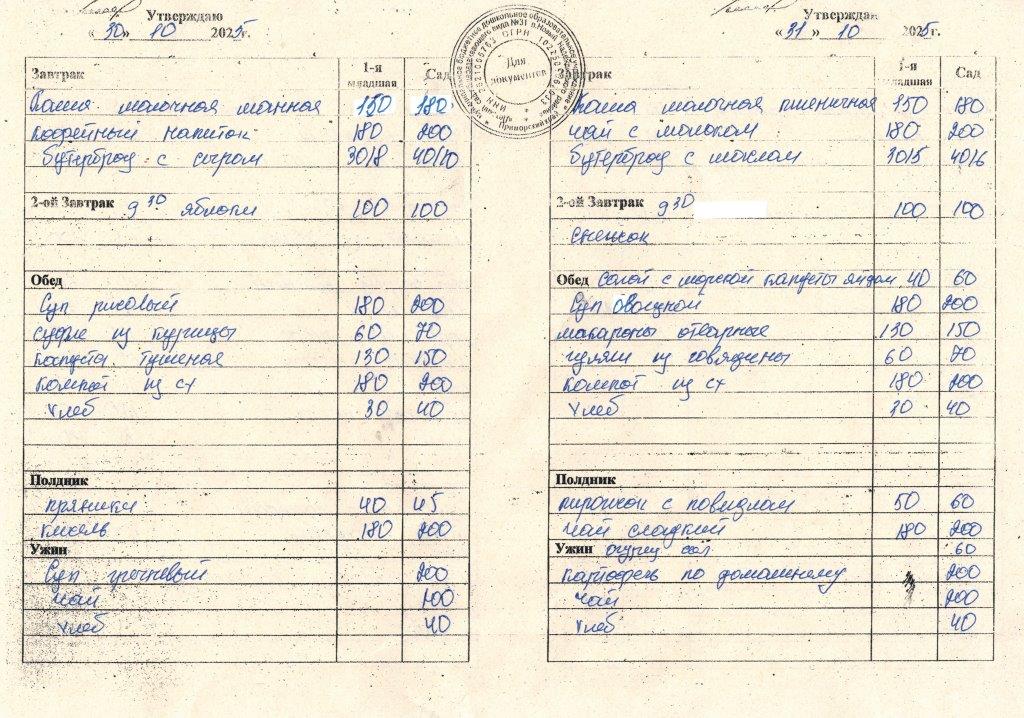 Утверждаю
« 30 » 10 2025г.
Завтрак 1-я младшая Сад
Каша молочная манная 150 180
Кофейный напиток 180 200
бутерброд с сыром 30/8 40/10
2-ой Завтрак 9 30 яблоки 100 100
Обед
Суп рисовый 180 200
суфле из курицы 60 70
капуста тушеная 130 150
компот из сх 180 200
хлеб 30 40
Полдник
пряники 40 45
кисель 180 200
Ужин
Суп гречневый 200
чай 100
хлеб 40
Для документов
Утверждаю
« 31 » 10 2025г.
Завтрак 1-я младшая Сад
Каша молочная пшеничная 150 180
чай с молоком 180 200
бутерброд с маслом 30/5 40/6
2-ой Завтрак 9 30 100 100
снежок
Обед салат с морской капусты яйцом 40 60
Суп овощной 180 200
макароны отварные 130 150
гуляш из говядины 60 70
компот из сх 180 200
хлеб 30 40
Полдник
пирожок с повидлом 50 60
чай сладкий 180 200
Ужин огурец сол 60
картофель по домашнему 200
чай 200
хлеб 40